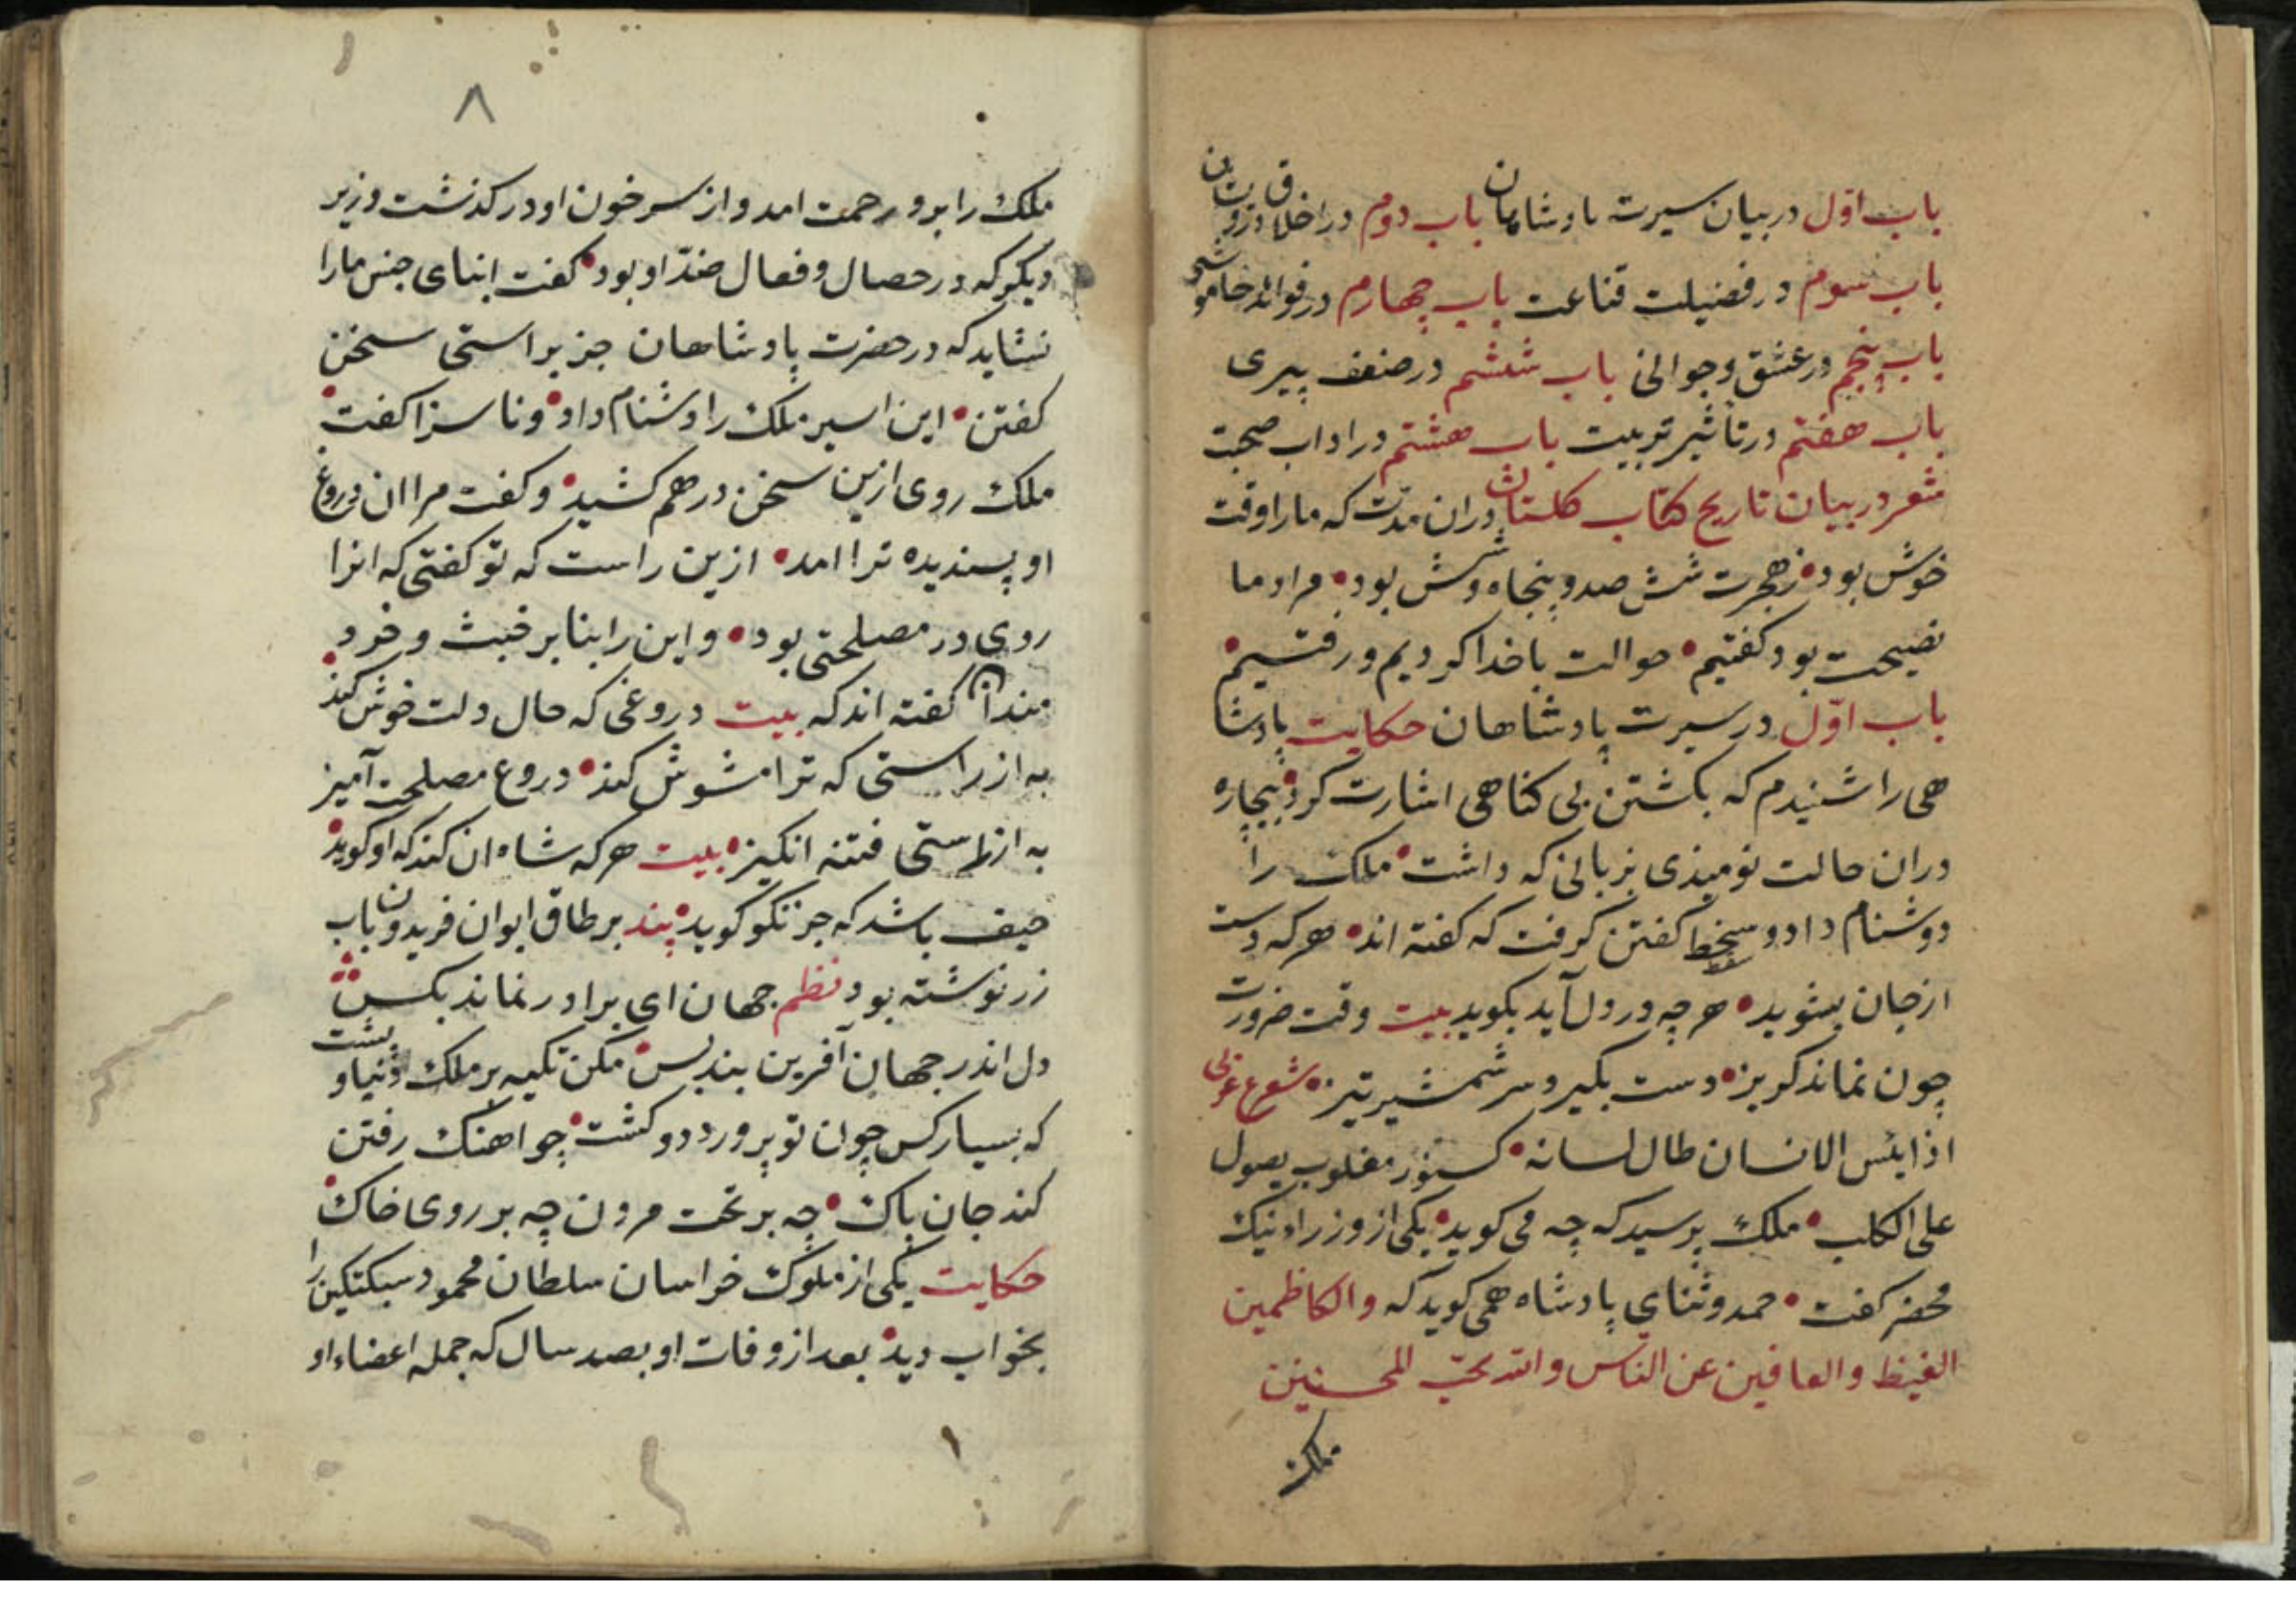 باب اوّل در بیان سیرت پادشاهان باب دوم در اخلاق درویشان
باب سوم در فضیلت قناعت باب چهارم در فوائد خاموشی
باب پنجم در عشق و جوانی باب ششم در ضعف پیری
باب هفتم در تأثیر تربیت باب هشتم در اداب صحبت
شعر در بیان تاریخ کتاب کلستان دران مدّت که ما را وقت
خوش بود زهجرت شش صد و پنجاه و شش بود مراد ما
نصیحت بود کفتیم حوالت باخدا کردیم و رفتیم
باب اوّل در سیرت پادشاهان حکایت پادشا
هی را شنیدم که بکشتن بی کناهی اشارت کرد بیچاره
دران حالت نومیذی بزبانی که داشت ملک را
دوشنام داد و سخط کفتن کرفت که کفته اند هرکه دست
از جان بشوید هرچه در دل آید بکوید بیت وقت ضرورت
چون نماند کریز دست بکیرد سر شمشیر تیز شعر عربی
اذا یئس الانسان طال لسانه کسنّور مغلوب یصول
علی الکلب ملک پرسید که چه می کوید یکی از وزراء نیک
محضر کفت حمد و ثنای پادشاه همی کوید که والکاظمین
الغیظ والعافین عن النّاس والله یحبّ المحسنین
ملک
۸
ملک را برو رحمت امد و از سر خون او درکذشت وزیر
دیکر که در حصال و فعال ضدّ او بود کفت ابنای جنس ما را
نشاید که در حضرت پادشاهان جز براستی سخن
کفتن این اسیر ملک را دشنام داد و ناسزا کفت
ملک روی ازین سخن درهم کشید و کفت مرا ان دروغ
او پسندیده تر امد ازین راست که تو کفتی که انرا
روی در مصلحتی بود و این را بنا بر خبث و خرد
مندان کفته اند که بیت دروغی که حال دلت خوش کند
به از راستی که ترا مشوش کند دروع مصلحت آمیز
به از راستی فتنه انکیز بیت هرکه شاه ان کند که او کوید
حیف باشد که جز نکو کوید پند بر طاق ایوان فریدون باب
زر نوشته بود نظم جهان ای برادر نماند بکس
دل اندر جهان آفرین بند بس مکن تکیه بر ملک دنیا و پشت
که بسیار کس چون تو پرورد و کشت چو اهنک رفتن
کند جان پاک چه بر تخت مردن چه بر روی خاک
حکایت یکی از ملوک خراسان سلطان محمود سبکتکین را
بخواب دید بعد از وفات او بصد سال که جمله اعضاء او